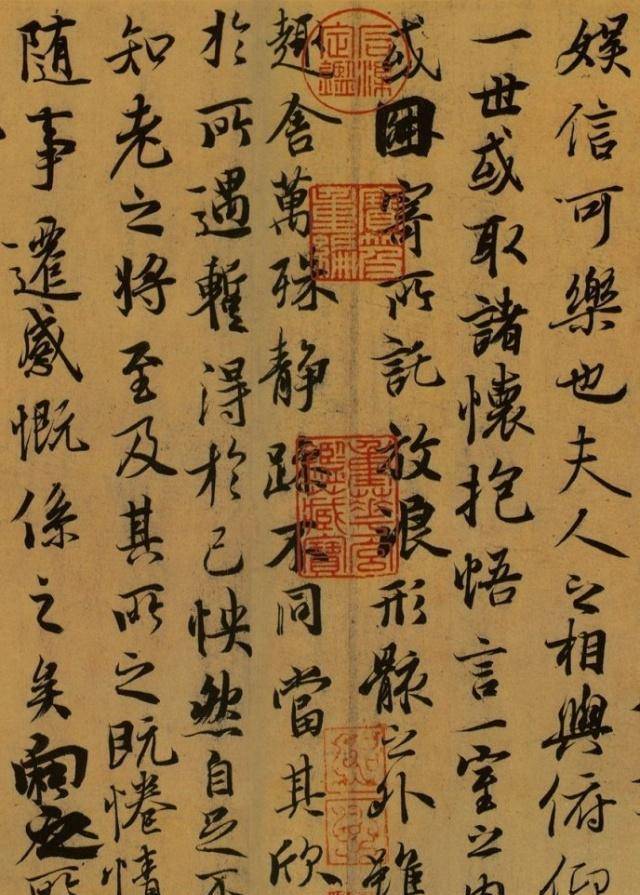 娛信可樂也夫人之相與俯仰
一世或取諸懷抱悟言一室之內
或因寄所託放浪形骸之外雖
趣舍萬殊靜躁不同當其欣
於所遇暫得於己怏然自足不
知老之將至及其所之既惓情
隨事遷感慨係之矣向之所
石渠定鑑
寶笈重編